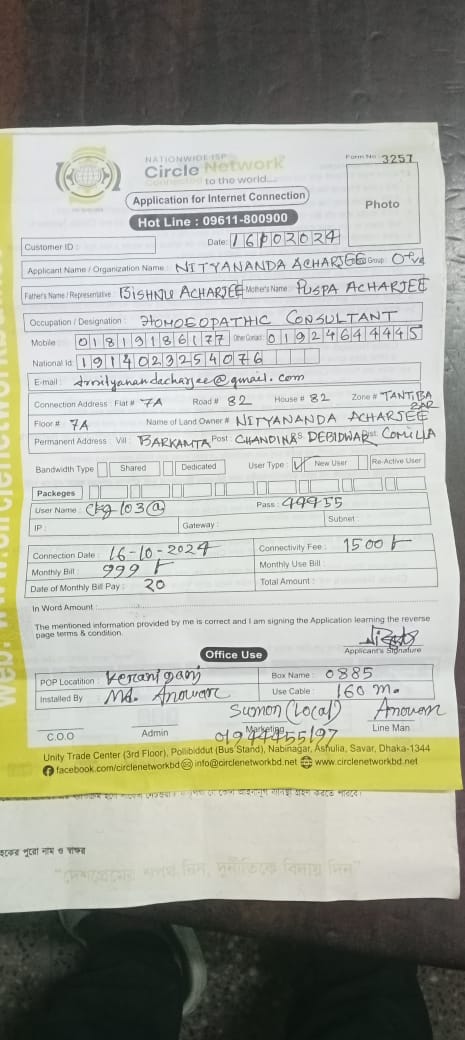 NATIONWIDE ISP
Circle Network
Connected to the world...
Form No : 3257
Application for Internet Connection
Hot Line : 09611-800900
Photo
Customer ID :
Date: 16102024
Applicant Name / Organization Name : NITYANANDA ACHARJEE Group:
Father's Name / Representative BISHNU ACHARJEE Mother's Name : PUSPA ACHARJEE
Occupation / Designation : HOMOEOPATHIC CONSULTANT
Mobile : 01819186177 Other Contact : 01924644445
National Id : 1914023254076
E-mail : drnityanandacharjee@gmail.com
Connection Address : Flat # 7A Road # 82 House # 82 Zone # TANTIBAZAR
Floor # 7A Name of Land Owner # NITYANANDA ACHARJEE
Permanent Address : Vill : BARKAMTA Post : CHANDINA PS: DEBIDWAR Dist: COMILLA
Bandwidth Type Shared Dedicated User Type : ✓ New User Re-Active User
Packeges
User Name : ckg103@ Pass : 44455
IP : Gateway : Subnet :
Connection Date : 16-10-2024 Connectivity Fee : 1500
Monthly Bill : 999 Monthly Use Bill :
Date of Monthly Bill Pay : 20 Total Amount :
In Word Amount :
The mentioned information provided by me is correct and I am signing the Application learning the reverse
page terms & condition.
Applicant's Signature
Office Use
POP Locatition : Keraniganj Box Name : 0885
Installed By Md. Anowar Use Cable : 160 m.
Sumon (Local) Anowar
C.O.O Admin Marketing Line Man
01944455197
Unity Trade Center (3rd Floor), Pollibiddut (Bus Stand), Nabinagar, Ashulia, Savar, Dhaka-1344
facebook.com/circlenetworkbd info@circlenetworkbd.net www.circlenetworkbd.net
"দেশপ্রেমের শপথ নিন, দুর্নীতিকে বিদায় দিন"